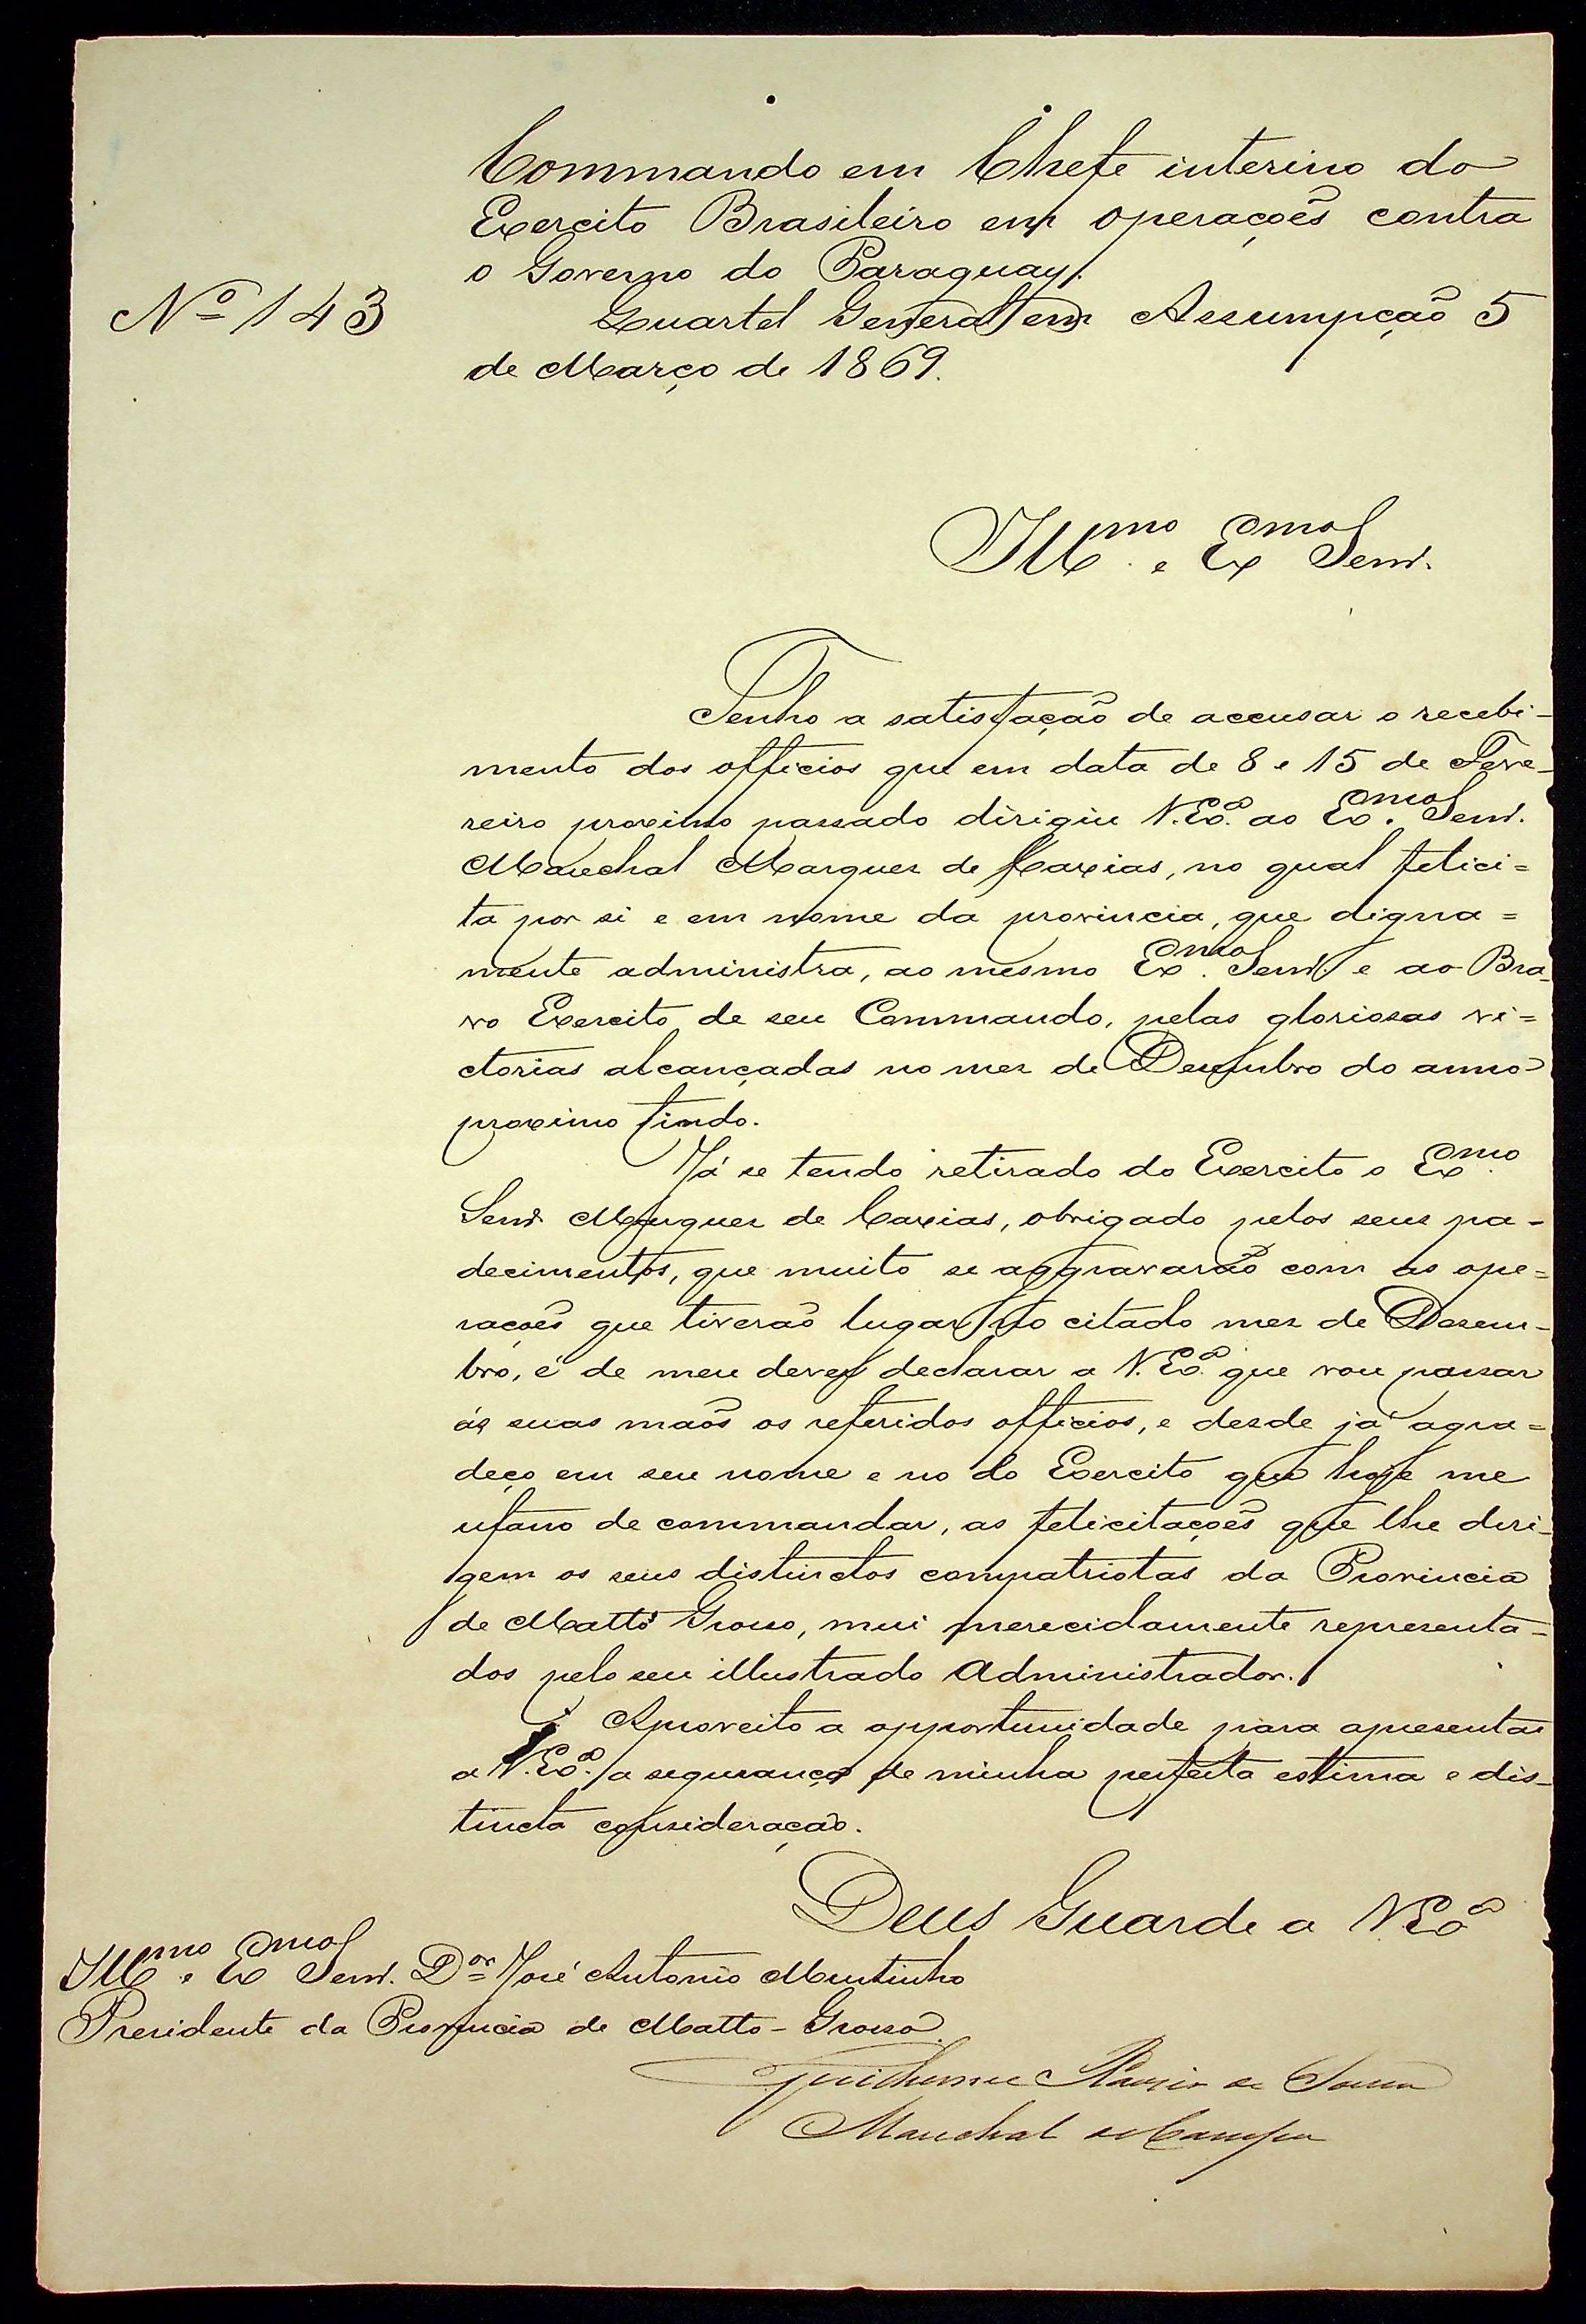 Commando em Chefe interino do
Exercito Brasileiro em operaçoẽs contra
o Governo do Paraguay.
Nº 143
Quartel General em Assumpção 5
de Março de 1869.
Illmo. e Exmo Senr.
Tenho a satisfação de accusar o recebi-
mento dos officios que em data de 8 e 15 de Feve-
reiro proximo passado dirigiu V. Exa. ao Exmo. Senr.
Marechal Marquez de Caxias, no qual felici=
ta por si e em nome da provincia, que digna=
mente administra, ao mesmo Exmo. Senr. e ao Bra-
vo Exercito de seu Commando, pelas gloriosas vi=
ctorias alcançadas no mez de Dezembro do anno
proximo findo.
Já se tendo retirado do Exercito o Exmo.
Senr Marquez de Caxias, obrigado pelos seus pa-
decimentos, que muito se aggravarão com as ope=
raçoẽs que tiverão lugar no citado mez de Dezem-
bro, é de meu dever declarar a V. Exa. que vou passar
ás suas maõs os referidos officios, e desde já agra=
deço em seu nome e no do Exercito que hoje me
ufano de commandar, as felicitaçoẽs que lhe diri-
gem os seus distinctos compatriotas da Provincia
de Matto Grosso, mui merecidamente representa=
dos pelo seu illustrado Administrador.
Aproveito a opportunidade para apresentar
a V. Exa. a segurança de minha perfeita estima e dis-
tincta consideração.
Deus Guarde a V. Exa
Illmo. e Exmo Senr. Dor José Antonio Murtinho
Presidente da Provincia de Matto-Grosso.
Guilherme Xavier de Souza
Marechal de Campo